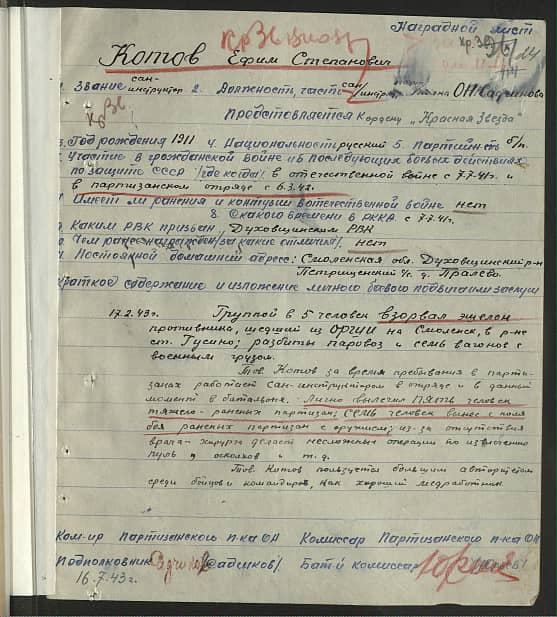 Наградной лист
Кр. Звезду
Кр. Зв.
КОТОВ Ефим Степанович
1. Звание сан-инструктор 2. Должность, часть сан/инстр. п-лка ОН Садчикова
Кр Зв.
представляется К ордену „Красная Звезда"
3. Год рождения 1911 4. Национальность русский 5. Партийность б/п.
Участие в гражданской войне и в последующих боевых действиях
по защите СССР /где когда/ в отечественной войне с 7.7.41г. и
в партизанском отряде с 6.3.42.
Имеет ли ранения и контузии в отечественной войне нет
8. С какого времени в РККА. с 7.7.41г.
Каким РВК призван, Духовщинским РВК
Чем ранее награжден /за какие отличия/. нет
Постоянный домашний адрес: Смоленская обл. Духовщинский р-н
с. д. Пралево.
Краткое содержание и изложение личного боевого подвига или заслуги
17.2.43г. Группой в 5 человек взорвал эшелон
противника, шедший из на Смоленск, в р-не
ст. Гусино; разбиты паровоз и семь вагонов с
военным грузом.
Тов. Котов за время пребывания в парти-
занах работает сан-инструктором в отряде и в данный
момент в батальоне. Лично вылечил пять человек
тяжело-раненых партизан; семь человек вынес с поля
боя раненых партизан с оружием; из-за отсутствия
врача-хирурга делает несложные операции по извлечению
пуль, осколков и т.д.
Тов. Котов пользуется большим авторитетом
среди бойцов и командиров, как хороший медработник.
Ком-ир Партизанского п-ка ОН Комиссар Партизанского п-ка ОН
Подполковник /Садчиков/. Бат-й комиссар
16.7.43г.